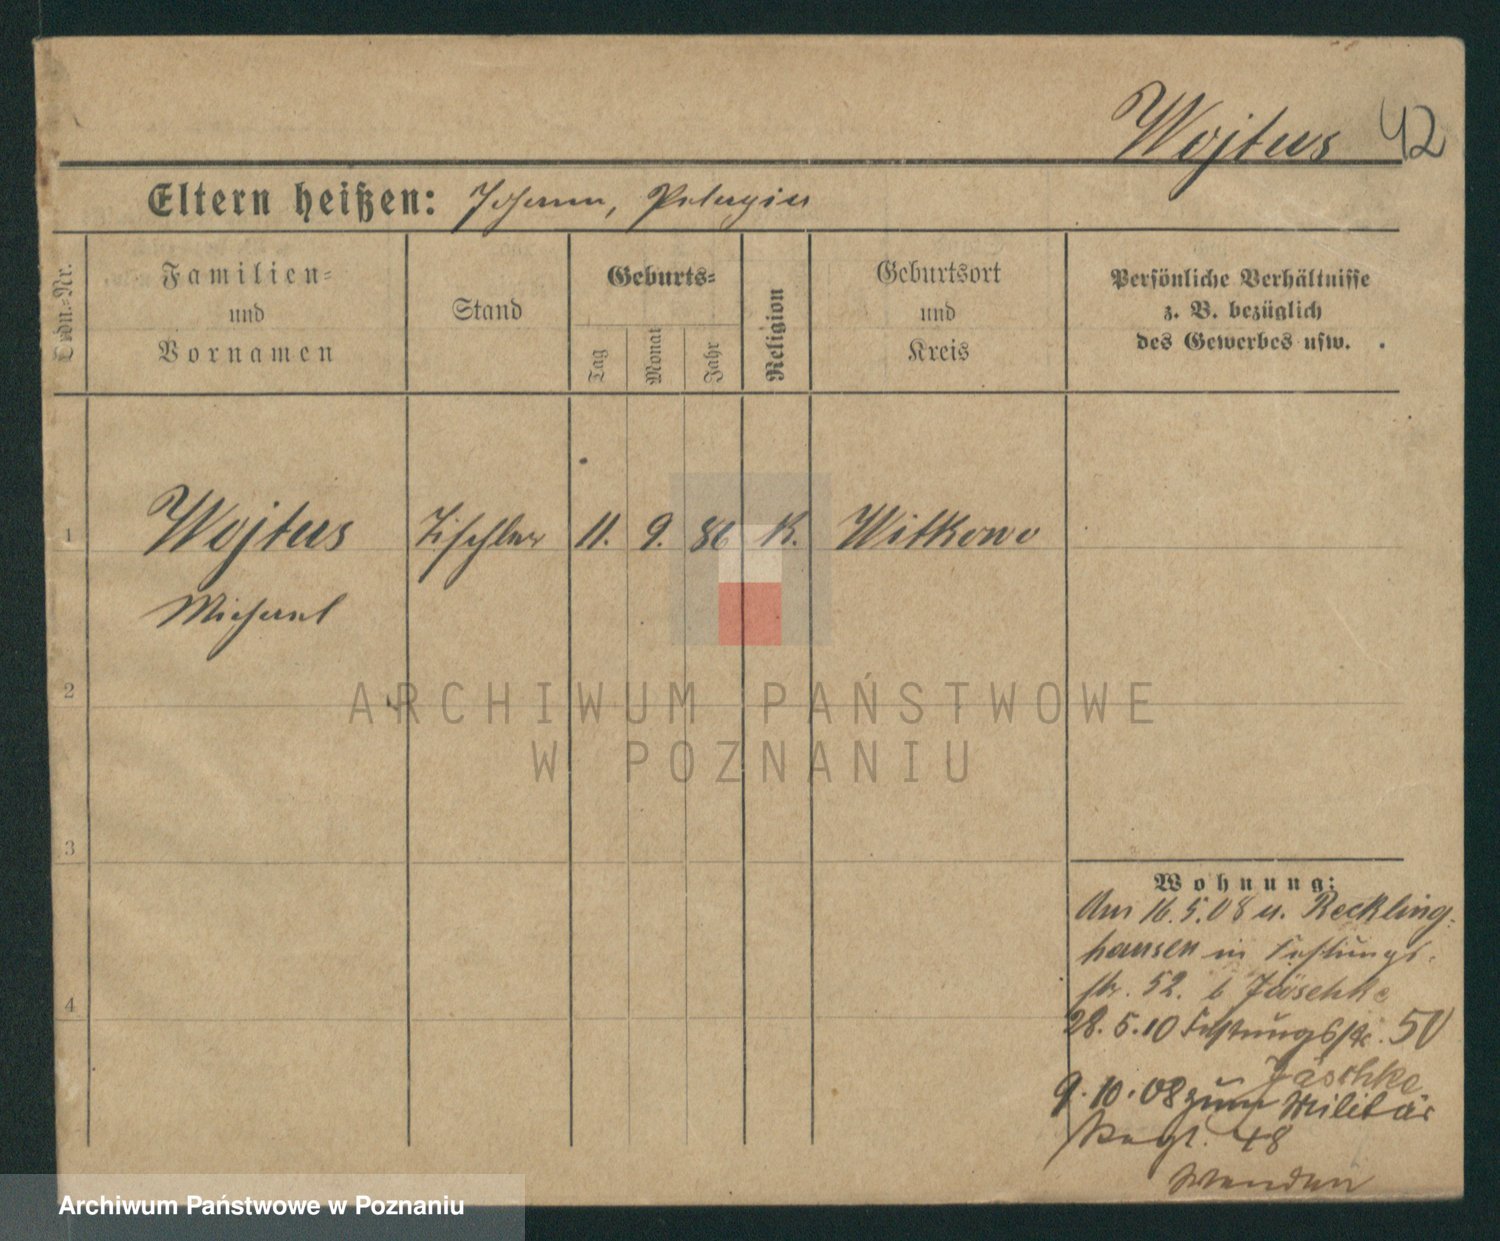 Wojtus 42
Eltern heißen: Johann, Pelagia
Ordn.-Nr.
Familien-
und
Vornamen
Stand
Geburts-
Tag
Monat
Jahr
Religion
Geburtsort
und
Kreis
Persönliche Verhältnisse
z. B. bezüglich
des Gewerbes usw.
1 Wojtus Tischler 11. 9. 86 K. Witkowo
Michael
2
3
4
Wohnung:
Am 16.5.08 u. Reckling-
hausen in Festungs-
str. 52. b Jäschke
28.5.10 Festungsstr. 50
Jäschke
9.10.08 zum Militär
Regt. 48
Wenden
ARCHIWUM PAŃSTWOWE
W POZNANIU
Archiwum Państwowe w Poznaniu